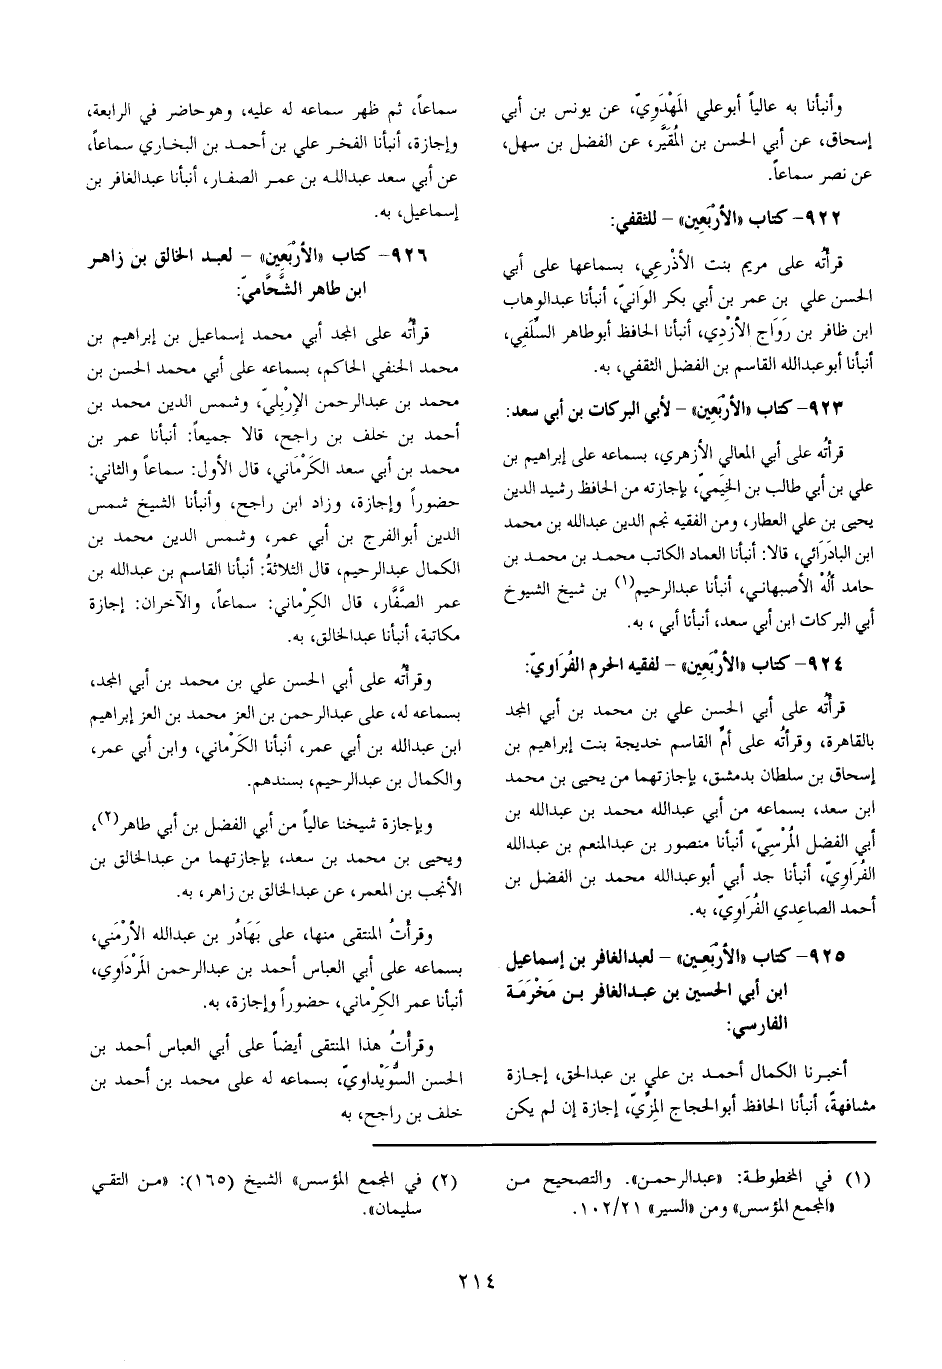 وأنبأنا به عالياً أبوعلي المَهْدَوِيّ، عن يونس بن أبي
إسحاق، عن أبي الحسن بن المُقَيَّر، عن الفضل بن سهل،
عن نصر سماعاً.
٩٢٢- كتاب «الأَرْبَعِين» - للثقفي:
قرأتُه على مريم بنت الأذْرعي، بسماعها على أبي
الحسن علي بن عمر بن أبي بكر الوَانيّ، أنبأنا عبدالوهاب
ابن ظافر بن رَوَاج الأزْدِي، أنبأنا الحافظ أبوطاهر السِّلَفِي،
أنبأنا أبوعبدالله القاسم بن الفضل الثقفي، به.
٩٢٣- كتاب «الأَرْبَعِين» - لأبي البركات بن أبي سعد:
قرأتُه على أبي المعالي الأزهري، بسماعه على إبراهيم بن
علي بن أبي طالب بن الخِيَميّ، بإجازته من الحافظ رشيد الدين
يحيى بن علي العطار، ومن الفقيه نجم الدين عبدالله بن محمد
ابن البادَرَائي، قالا: أنبأنا العماد الكاتب محمد بن محمد بن
حامد ألُهْ الأصبهاني، أنبأنا عبدالرحيم(١) بن شيخ الشيوخ
أبي البركات ابن أبي سعد، أنبأنا أبي ، به.
٩٢٤- كتاب «الأَرْبَعِين» - لفقيه الحرم الفُرَاوِيّ:
قرأتُه على أبي الحسن علي بن محمد بن أبي المجد
بالقاهرة، وقرأتُه على أمِّ القاسم خديجة بنت إبراهيم بن
إسحاق بن سلطان بدمشق، بإجازتهما من يحيى بن محمد
ابن سعد، بسماعه من أبي عبدالله محمد بن عبدالله بن
أبي الفضل المُرْسِيّ، أنبأنا منصور بن عبدالمنعم بن عبدالله
الفُرَاوِيّ، أنبأنا جد أبي أبوعبدالله محمد بن الفضل بن
أحمد الصاعدي الفُرَاوِيّ، به.
٩٢٥- كتاب «الأَرْبَعِين» - لعبدالغافر بن إسماعيل
ابن أبي الحسين بن عبدالغافر بن مَخْرَمَة
الفارسي:
أخبرنا الكمال أحمد بن علي بن عبدالحق، إجازة
مشافهةً، أنبأنا الحافظ أبوالحجاج المِزِّيّ، إجازة إن لم يكن
سماعاً، ثم ظهر سماعه له عليه، وهوحاضر في الرابعة،
وإجازة، أنبأنا الفخر علي بن أحمد بن البخاري سماعاً،
عن أبي سعد عبدالله بن عمر الصفار، أنبأنا عبدالغافر بن
إسماعيل، به.
٩٢٦- كتاب «الأَرْبَعِين» - لعبد الخالق بن زاهر
ابن طاهر الشَّحَّاميّ:
قرأتُه على المجد أبي محمد إسماعيل بن إبراهيم بن
محمد الحنفي الحاكم، بسماعه على أبي محمد الحسن بن
محمد بن عبدالرحمن الإرْبليّ، وشمس الدين محمد بن
أحمد بن خلف بن راجح، قالا جميعاً: أنبأنا عمر بن
محمد بن أبي سعد الكَرْمَاني، قال الأول: سماعاً والثاني:
حضوراً وإجازة، وزاد ابن راجح، وأنبأنا الشيخ شمس
الدين أبوالفرج بن أبي عمر، وشمس الدين محمد بن
الكمال عبدالرحيم، قال الثلاثةُ: أنبأنا القاسم بن عبدالله بن
عمر الصَّفَّار، قال الكِرْماني: سماعاً، والآخران: إجازة
مكاتبة، أنبأنا عبدالخالق، به.
وقرأتُه على أبي الحسن علي بن محمد بن أبي المجد،
بسماعه له، على عبدالرحمن بن العز محمد بن العز إبراهيم
ابن عبدالله بن أبي عمر، أنبأنا الكَرْماني، وابن أبي عمر،
والكمال بن عبدالرحيم، بسندهم.
وبإجازة شيخنا عالياً من أبي الفضل بن أبي طاهر(٢)،
ويحيى بن محمد بن سعد، بإجازتهما من عبدالخالق بن
الأنجب بن المعمر، عن عبدالخالق بن زاهر، به.
وقرأتُ المنتقى منها، على بَهَادُر بن عبدالله الأرْمَني،
بسماعه على أبي العباس أحمد بن عبدالرحمن المَرْدَاوِي،
أنبأنا عمر الكِرْماني، حضوراً وإجازة، به.
وقرأتُ هذا المنتقى أيضاً على أبي العباس أحمد بن
الحسن السُّوَيْداويّ، بسماعه له على محمد بن أحمد بن
خلف بن راجح، به
(١) في المخطوطة: «عبدالرحمن». والتصحيح من
«المجمع المؤسس» ومن «السير» ١٠٢/٢١.
(٢) في المجمع المؤسس» الشيخ (١٦٥): «من التقي
سليمان».
٢١٤